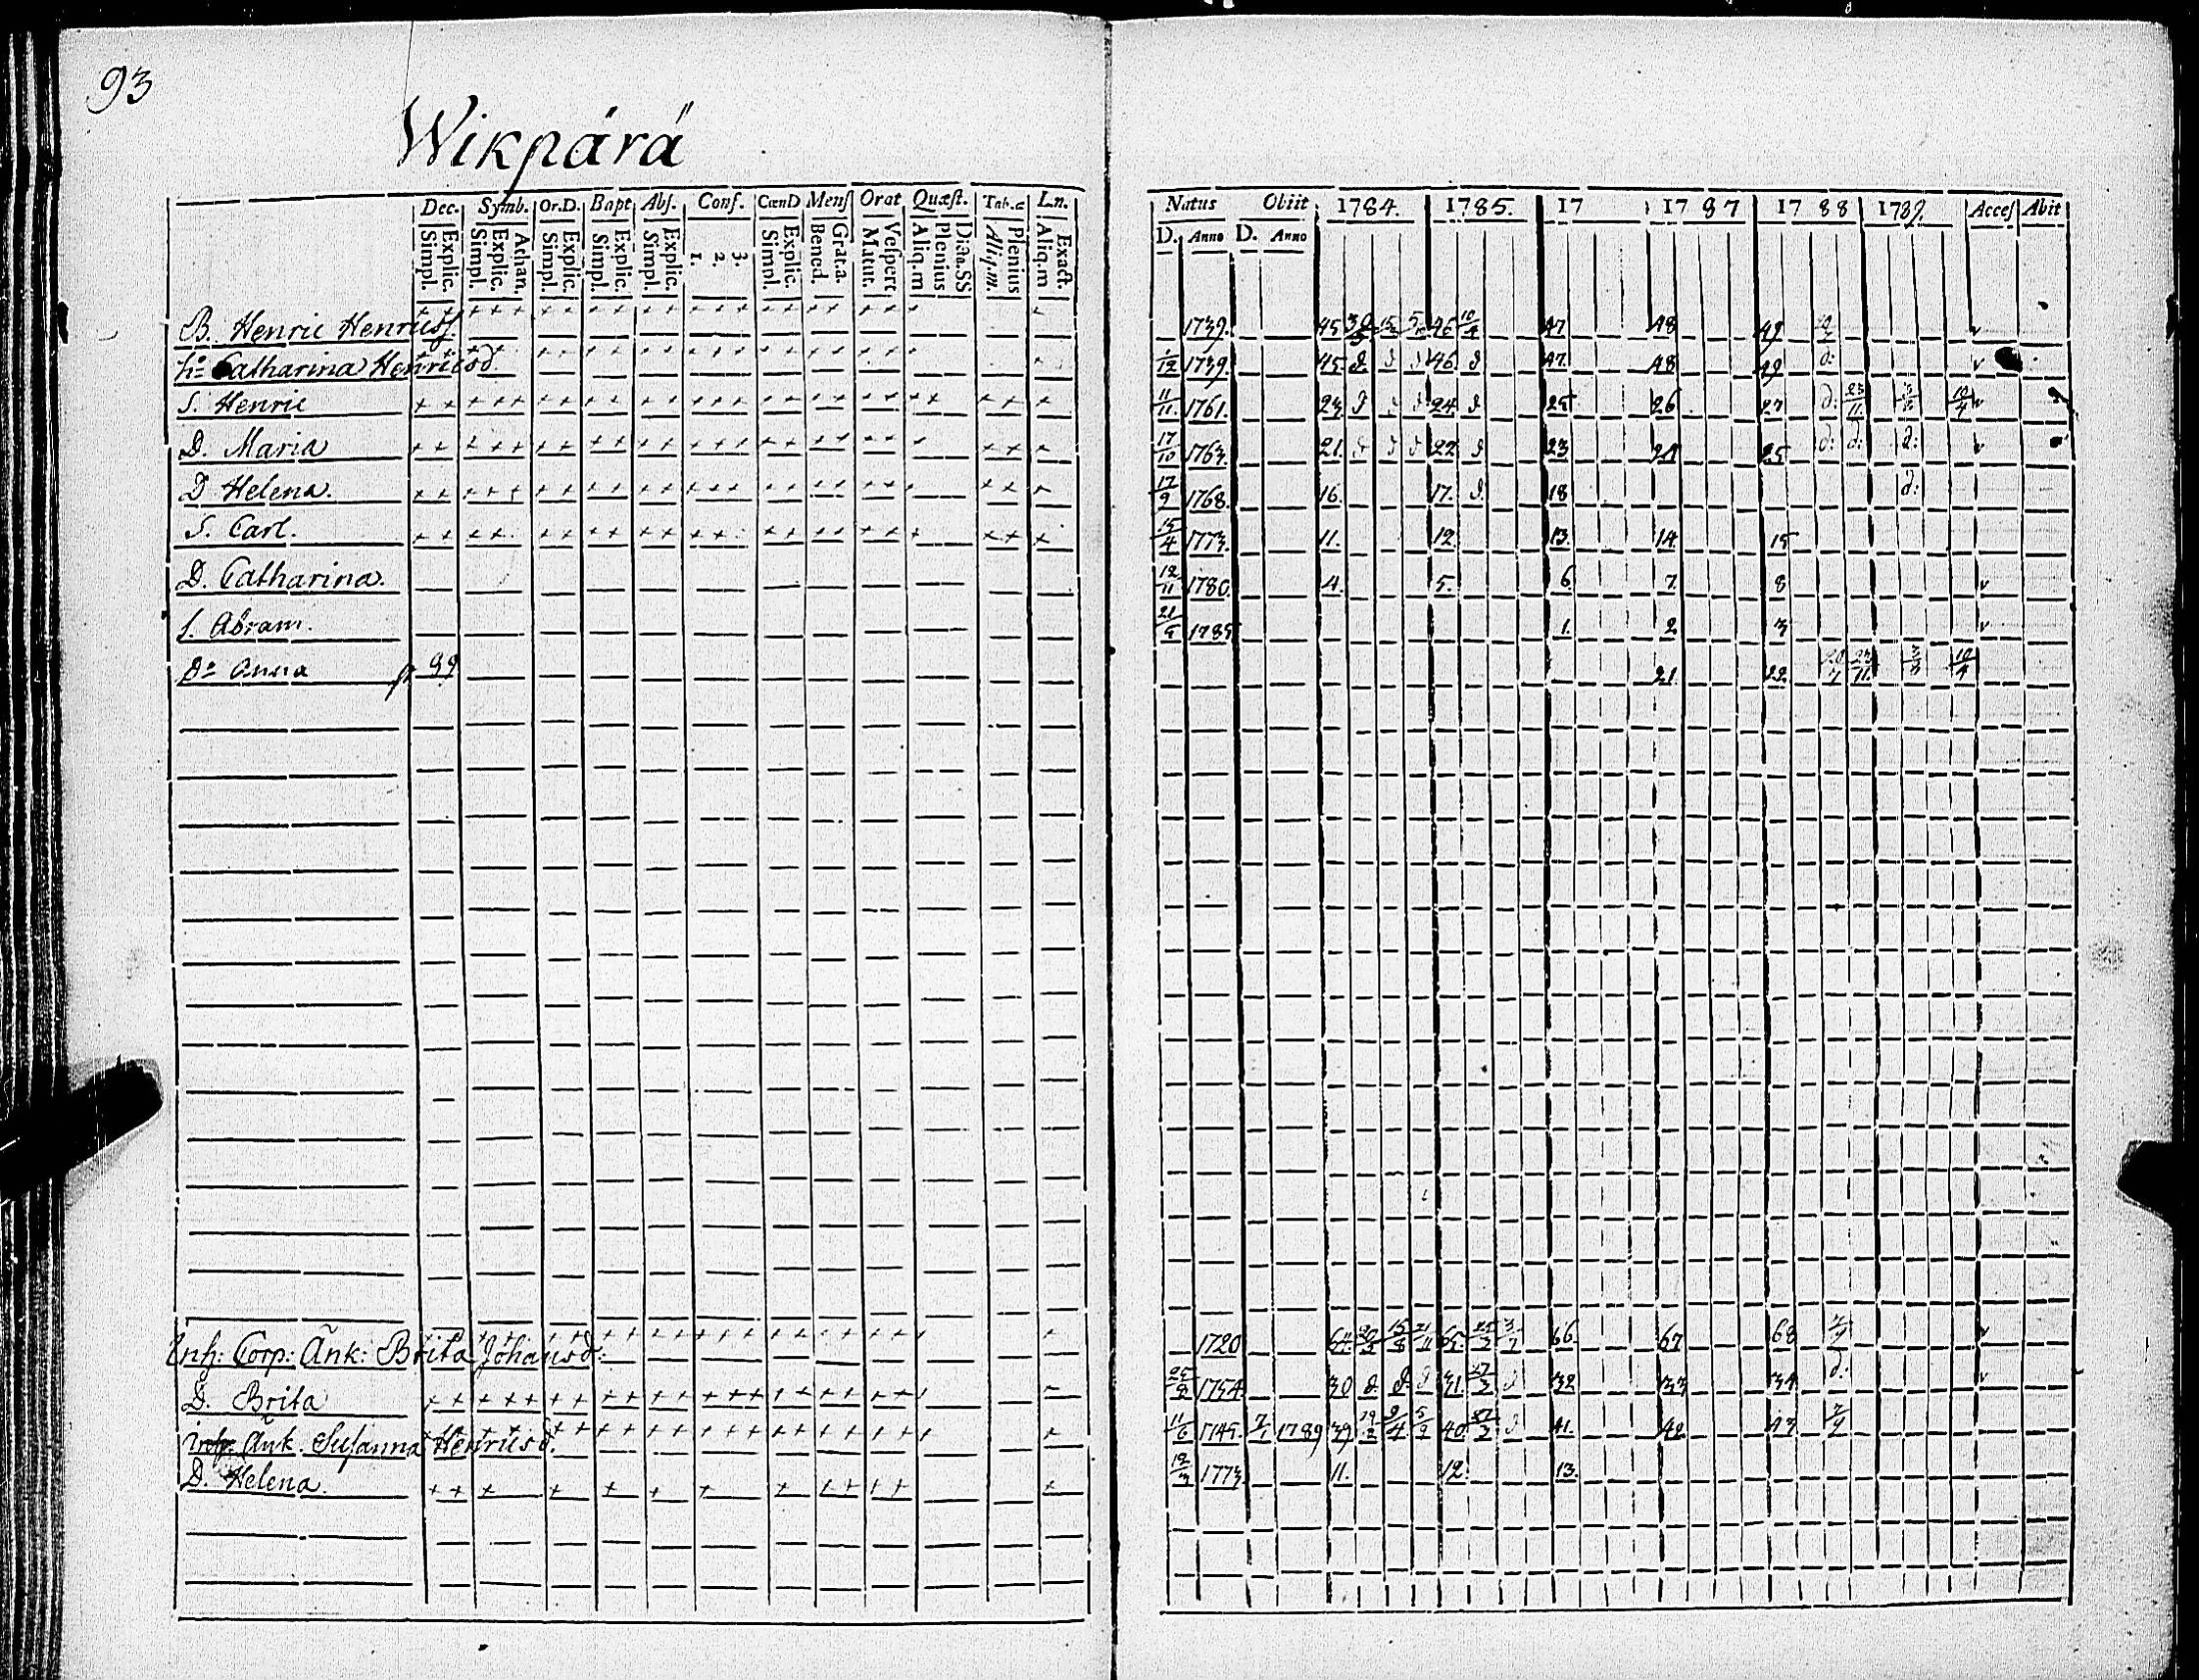 93
Wikpärä
Dec. Symb. Or.D. Bapt Abſ. Conf. CœnD Menſ Orat Quæſt. Tab.æ L.n.
Simpl. Explic. Simpl. Explic. Achan. Simpl. Explic. Simpl. Explic. Simpl. Explic. 1. 2. 3. Simpl. Explic. Bened. Grat.a. Matut. Veſpert Aliq.m Plenius Dicta.SS Aliq.m. Plenius Aliq.m Exact.
Natus Obiit 1784. 1785. 17 1787 1788 1789. Acceſ Abit
D. Anno D. Anno
B. Henric Henricsſ. 1739. 45 46 10/4 47 48 49
h:o Catharina Henricsd 1/12 1739. 45 d d d 46 d 47. 48 49 d:
S. Henric 11/11 1761. 23 d d d 24 d 25 26 27 d: 23/11 10/4
D. Maria 17/10 1763. 21. d d d 22 d 23 24 25 d: d: d:
D Helena. 17/9 1768. 16. 17. d. 18 d:
S. Carl. 15/4 1773. 11. 12. 13. 14. 15
D. Catharina. 12/11 1780. 4. 5. 6. 7. 8
S. Abram. 1785 1. 2 3
D:o Anna p 99 21. 22 23/11 10/4
Inh: Corp: Änk: Brita Johansd: 1720 64 65 66. 67 68 7/9
D. Brita 1754 30 d. d. d 31. d 32 33 34 d:
Änk. Susanna Henricsd. 11/6 1745. 7/1 1789 39 40. d 41. 42 43 7/9
D. Helena. 12/3 1773. 11. 12. 13.